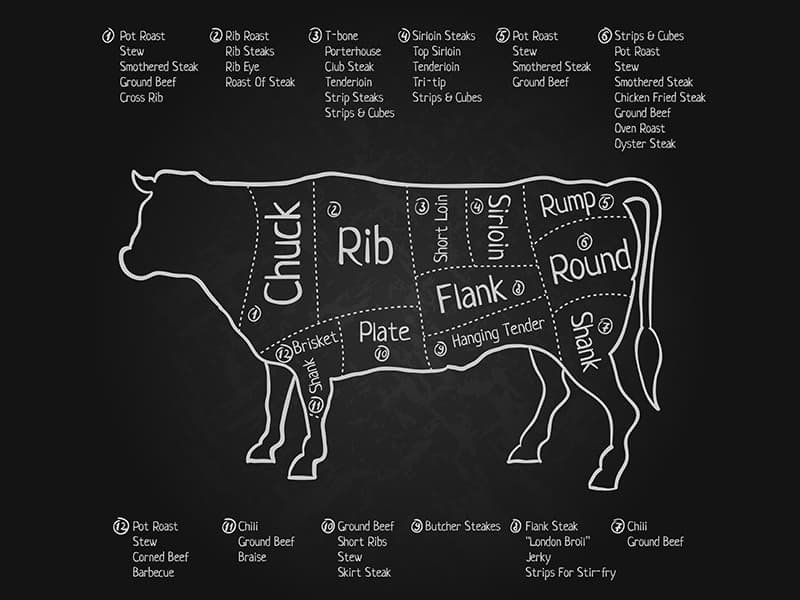 ① Pot Roast
Stew
Smothered Steak
Ground Beef
Cross Rib
② Rib Roast
Rib Steaks
Rib Eye
Roast Of Steak
③ T-bone
Porterhouse
Club Steak
Tenderloin
Strip Steaks
Strips & Cubes
④ Sirloin Steaks
Top Sirloin
Tenderloin
Tri-tip
Strips & Cubes
⑤ Pot Roast
Stew
Smothered Steak
Ground Beef
⑥ Strips & Cubes
Pot Roast
Stew
Smothered Steak
Chicken Fried Steak
Ground Beef
Oven Roast
Oyster Steak
Chuck
①
②
Rib
③
Short Loin
④
Sirloin
Rump ⑤
⑥
Round
Flank ⑧
⑨ Hanging Tender
Shank ⑦
⑫ Brisket
Plate
⑩
Shank
⑪
⑫ Pot Roast
Stew
Corned Beef
Barbecue
⑪ Chili
Ground Beef
Braise
⑩ Ground Beef
Short Ribs
Stew
Skirt Steak
⑨ Butcher Steakes
⑧ Flank Steak
"London Broil"
Jerky
Strips For Stir-fry
⑦ Chili
Ground Beef